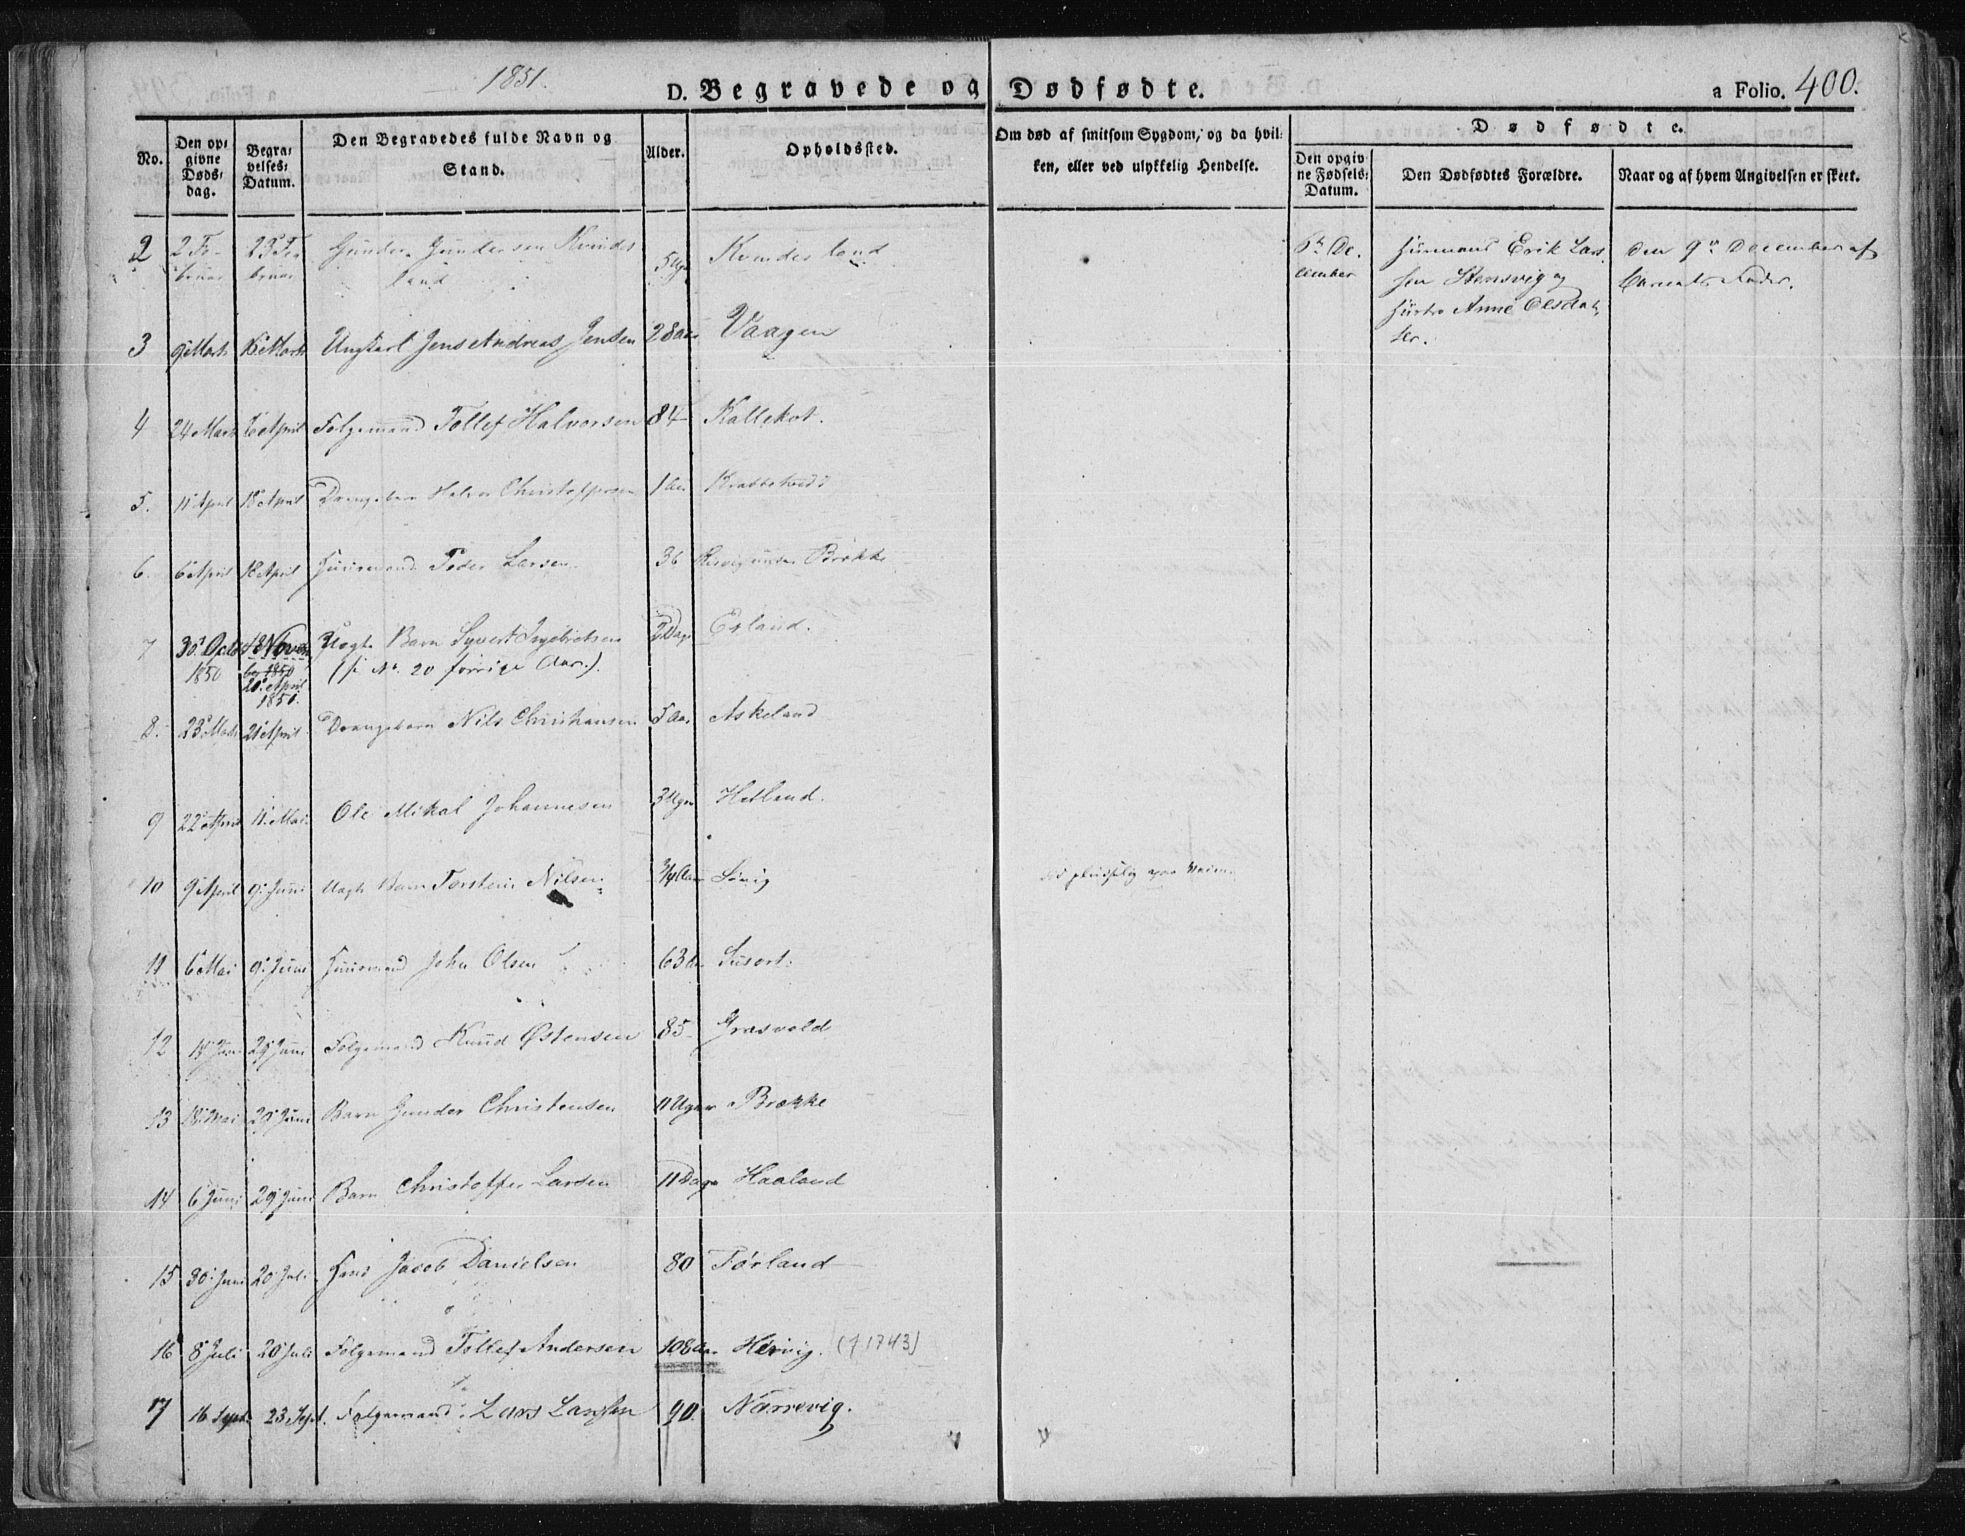 1851.
D. Begravede og Dødfødte.
a Folio. 400.
No.
Den op-
givne
Døds-
dag.
Begra-
velses-
Datum.
Den Begravedes fulde Navn og
Stand.
Alder.
Opholdssted.
Om død af smitsom Sygdom, og da hvil-
ken, eller ved ulykkelig Hendelse.
Dødfødte.
Den opgiv-
ne Fødsels-
Datum.
Den Dødfødtes Forældre.
Naar og af hvem Angivelsen er skeet.
2 2 Fe- 23 Fe- Gunder Gundersen Kvinds 5 Uger Kvindesland
bruar bruar land
6te De-
cember
Huusmand Erik Lar-
sen Stensvig og
Hustro Anne Olsdat-
ter.
den 9de December af
Barnets Fader.
3 9 Marts 16 Marts Ungkarl Jens Andreas Jensen 28 Aar Vaagen
4 24 Marts 6 April Folgemand Tollef Halvorsen 84 Kallekot.
5. 11 April 18 April Drengebarn Halvor Christophersen 1 Aar
6. 6 April 18 April Huusmand Peder Larsen 36 under Brekke
7 30 Octo 18 Novem Uægte Barn Syvert Ingebretsen Dage Erland.
1850 ber 1850 (fr No. 20 forrige Aar.).
20 April
1850.
8. 23 Marts 21 April Drengebarn Nils Christiansen 5 Aar Askeland
9 22 April 11 Mai Ole Mikal Johannesen 3 Uger Hetland.
10 9 April 9 Juni Uægte Barn Torstein Nilsen 3/4 Aar Sevig
død pludselig paa Veien
11 6 Mai 9 Juni Huusmand John Olsen 63 Aar Susort.
12 29 Juni Folgemand Knud Østensen 85 Grasvold
13 18 Mai 29 Juni Barn Gunder Christensen 11 Uger Brekke
14 6 Juni 29 Juni Barn Christoffer Larsen 11 Dage Haaland
15 30 Juni 20 Juli Jacob Danielsen 80 Førland
16 8 Juli 20 Juli Folgemand Tollef Andersen 108 Aar Hervig. (f 1743)
17 16 Sept. 23 Sept. Folgemand Lars Larssen 90. Narrevig.